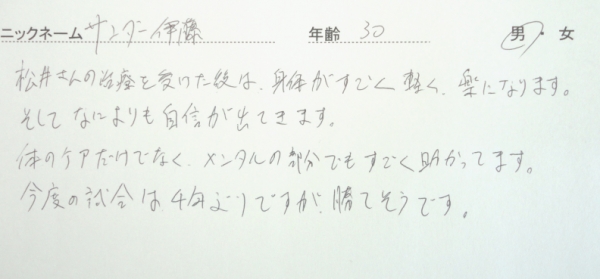 ニックネーム サンダー伊藤 年齢 30 男・女
松井さんの治療を受けた後は、身体がすごく軽く、楽になります。
そしてなによりも自信が出てきます。
体のケアだけでなく、メンタルの部分でもすごく助かってます。
今度の試合は4年ぶりですが、勝てそうです。